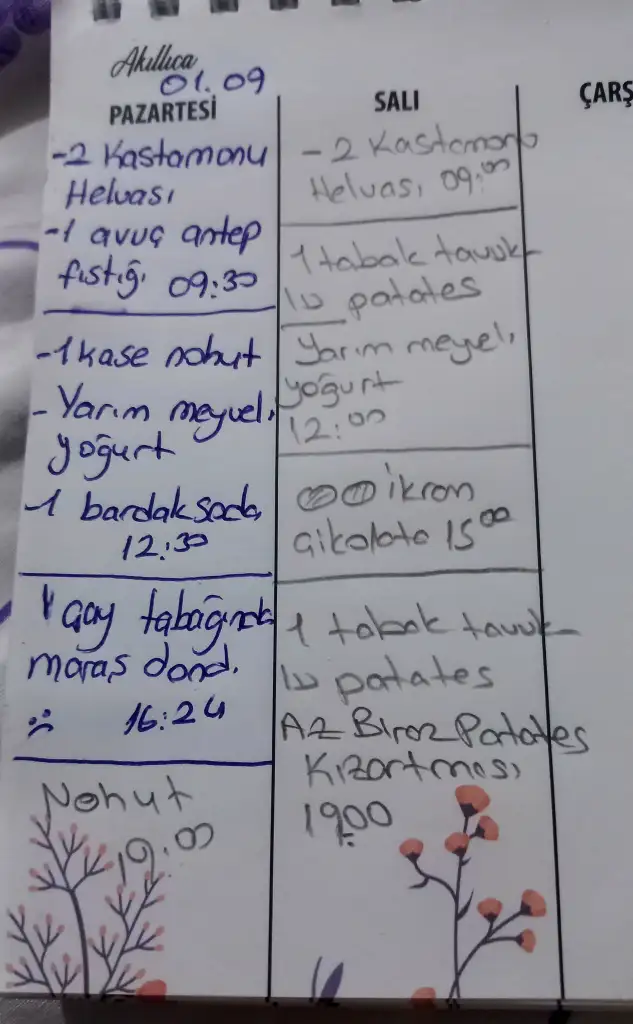 Akıllıca
01.09
PAZARTESİ
-2 Kastamonu
Helvası
-1 avuç antep
fıstığı 09:30
-1 kase nohut
- Yarım meyveli
yoğurt
-1 bardak soda
12:30
1 çay tabağında
maraş dond.
:( 16:24
Nohut
19:00
SALI
- 2 Kastamonu
Helvası 09:00
1 tabak tavuk
lu patates
Yarım meyveli
yoğurt
12:00
ikram
çikolata 15 00
1 tabak tavuk
lu patates
Az Biraz Patates
Kızartması
19 00
ÇARŞ